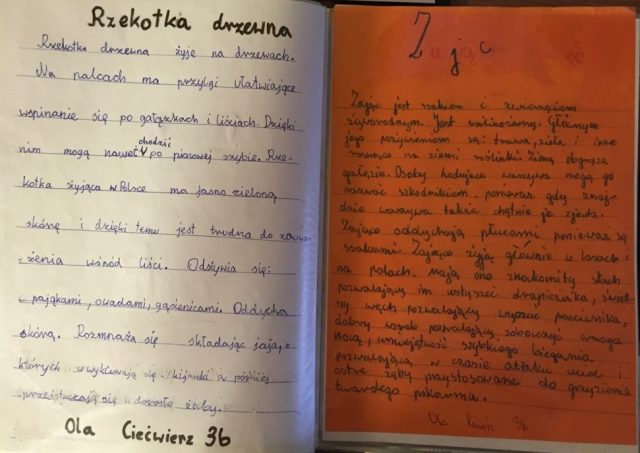 Rzekotka drzewna
Rzekotka drzewna żyje na drzewach.
Na palcach ma przylgi ułatwiające
wspinanie się po gałązkach i liściach. Dzięki
chodzić
nim mogą nawet po pionowej szybie. Rze-
kotka żyjąca w Polsce ma jasno zieloną
skórę i dzięki temu jest trudna do zauwa-
-żenia wśród liści. Odżywia się:
- pająkami, owadami, gąsienicami. Oddycha
skórą. Rozmnaża się składając jaja, z
których wykluwają się kijanki a później
przeistaczają się w dorosłe żaby.
Ola Ciećwierz 3b
Zając
Zając jest ssakiem i zwierzęciem
Jest roślinożerny. Głównym
jego pożywieniem są: trawa, zioła i inne
rosnące na ziemi roślinki. Zimą obgryza
gałęzie. Osoby hodujące warzywa mogą go
nazwać szkodnikiem, ponieważ gdy znaj-
dzie warzywa także chętnie je zjada.
Zające oddychają płucami ponieważ są
ssakami. Zające żyją głównie w lasach i
na polach. Mają one znakomity słuch
pozwalający im usłyszeć drapieżnika, świet-
ny węch pozwalający wyczuć przeciwnika,
dobry wzrok pozwalający zobaczyć wroga
nocą, umiejętność szybkiego biegania
pozwalającą w czasie ataku uciec i
ostre zęby przystosowane do gryzienia
twardego pokarmu.
Ola 3b